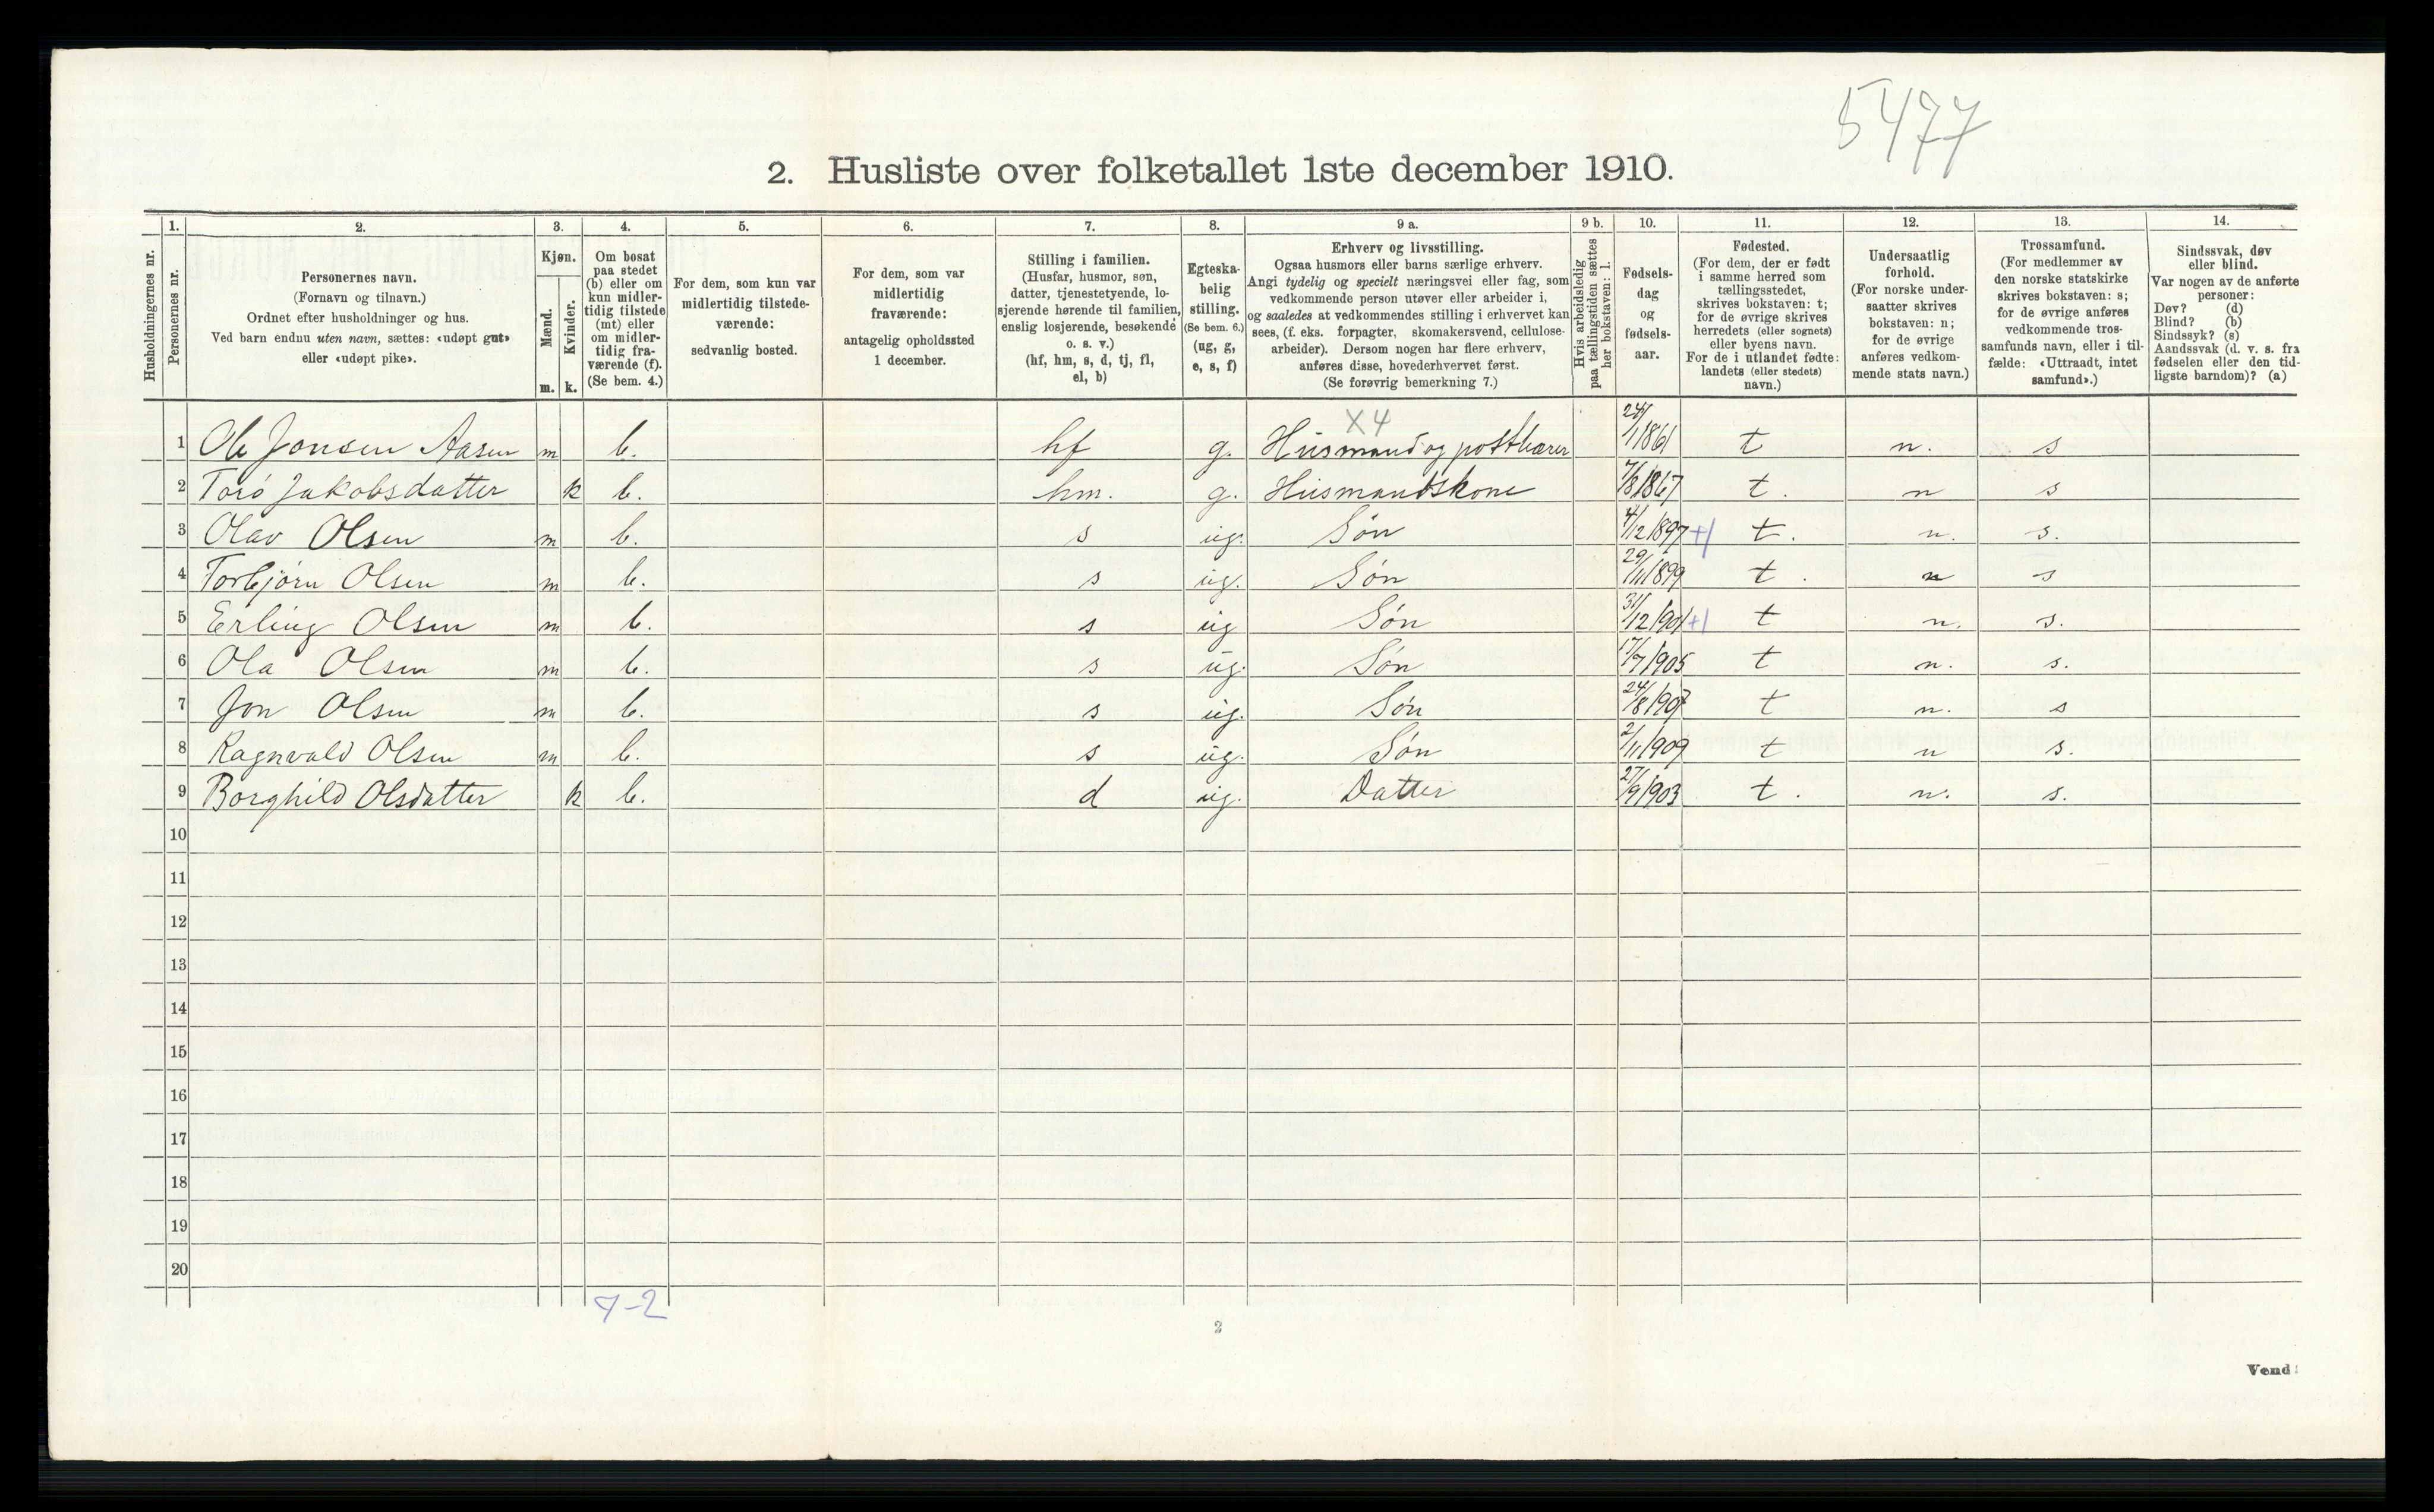 5477
2. Husliste over folketallet 1ste december 1910.
Husholdningernes nr.
1. Personernes nr.
2. Personernes navn.
(Fornavn og tilnavn.)
Ordnet efter husholdninger og hus.
Ved barn endnu uten navn, sættes: «udøpt gut»
eller «udøpt pike».
3. Kjøn.
Mænd. m.
Kvinder. k.
4. Om bosat
paa stedet
(b) eller om
kun midler-
tidig tilstede
(mt) eller
om midler-
tidig fra-
værende (f).
(Se bem. 4.)
5. For dem, som kun var
midlertidig tilstede-
værende:
sedvanlig bosted.
6. For dem, som var
midlertidig
fraværende:
antagelig opholdssted
1 december.
7. Stilling i familien.
(Husfar, husmor, søn,
datter, tjenestetyende, lo-
sjerende hørende til familien,
enslig losjerende, besøkende
o. s. v.)
(hf, hm, s, d, tj, fl,
el, b)
8. Egteska-
belig
stilling.
(Se bem. 6.)
(ug, g,
e, s, f)
9 a. Erhverv og livsstilling.
Ogsaa husmors eller barns særlige erhverv.
Angi tydelig og specielt næringsvei eller fag, som
vedkommende person utøver eller arbeider i,
og saaledes at vedkommendes stilling i erhvervet kan
sees, (f. eks. forpagter, skomakersvend, cellulose-
arbeider). Dersom nogen har flere erhverv,
anføres disse, hovederhvervet først.
(Se forøvrig bemerkning 7.)
9 b. Hvis arbeidsledig
paa tællingstiden sættes
her bokstaven: l.
10. Fødsels-
dag
og
fødsels-
aar.
11. Fødested.
(For dem, der er født
i samme herred som
tællingsstedet,
skrives bokstaven: t;
for de øvrige skrives
herredets (eller sognets)
eller byens navn.
For de i utlandet fødte:
landets (eller stedets)
navn.)
12. Undersaatlig
forhold.
(For norske under-
saatter skrives
bokstaven: n;
for de øvrige
anføres vedkom-
mende stats navn.)
13. Trossamfund.
(For medlemmer av
den norske statskirke
skrives bokstaven: s;
for de øvrige anføres
vedkommende tros-
samfunds navn, eller i til-
fælde: «Uttraadt, intet
samfund».)
14. Sindssvak, døv
eller blind.
Var nogen av de anførte
personer:
Døv? (d)
Blind? (b)
Sindssyk? (s)
Aandssvak (d. v. s. fra
fødselen eller den tid-
ligste barndom)? (a)
X4
1 Ole Jonsen Aasen m b. hf g. Husmand og postbærer 24/1 1861 t n. s
2 Torø Jakobsdatter k b. hm. g. Husmandskone 7/8 1867 t. n s
3 Olav Olsen m b. s ug. Søn 4/12 1897 +1 t. n. s.
4 Torbjørn Olsen m b. s ug. Søn 29/11 1899 t. n s
5 Erling Olsen m b. s ug Søn 31/12 1901 +1 t n. s.
6 Ola Olsen m b. s ug. Søn 17/7 1905 t n. s.
7 Jon Olsen m b. s ug. Søn 24/8 1907 t n. s
8 Ragnvald Olsen m b. s ug. Søn 2/11 1909 t n s.
9 Borghild Olsdatter k b. d ug. Datter 27/9 1903 t. n. s.
10
11
12
13
14
15
16
17
18
19
20
7-2
2
Vend!